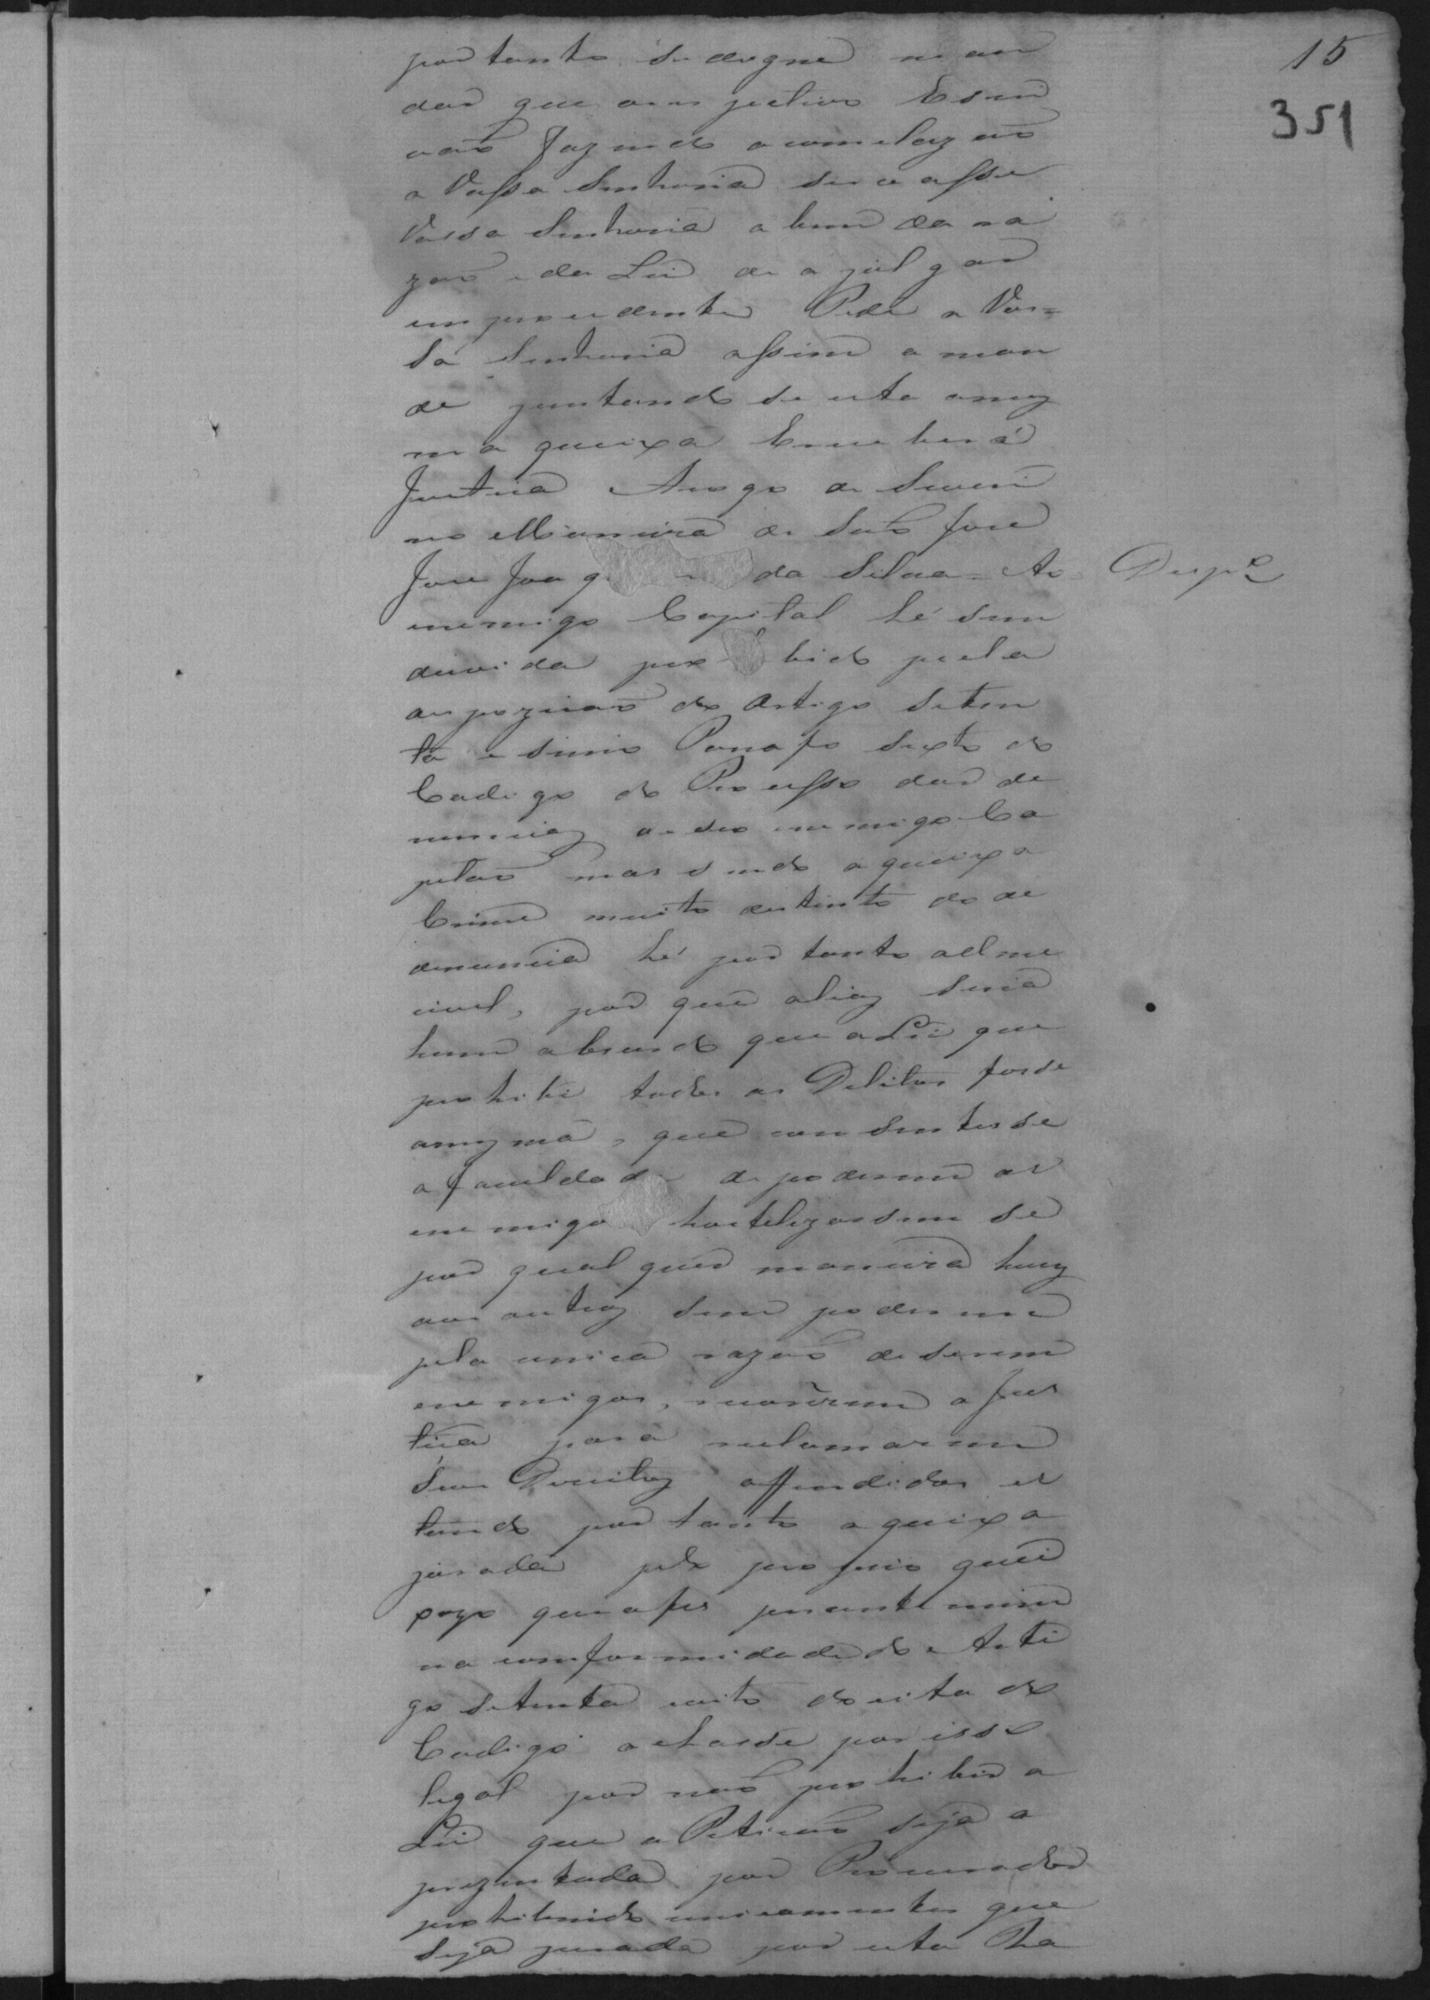 15
351
por tanto se degne man
dar que o respectivo Escri
vão fazendo a concluzão
a Vossa Senhoria
Vossa Senhoria a bem da ra
zão e da Lei de a julgar
improcedente Pede a Vos=
sa Senhoria assim o man
de juntando se esta a mez
ma queixa E recebera
Justiça Arogo de Severi
no Moreira de São José
José Joaq da Silva = Ao
Desp.º
inemigo Capital hé sem
duvida pro hido pela
despozição do Artigo Seten
ta e sinco Paragrafo sexto do
Codigo do Processo dar de
nuncia de seo inemigo Ca
pital mas sendo a queixa
Crime muito destinto do de
denuncia hé por tanto adme
civel, por que aliaz seria
hum absurdo que a Lei que
prohibe todos os Delitos fosse
a mezma, que consentisse
a faculdade de poderem os
inemigos hostelizarem se
por qual quer maneira huns
aos outroz sem poderem
pela unica razão de serem
inemigos, recorrerem a Jus
tiça para reclamarem
seus Direitoz offendidos es
tando por tanto a queixa
jurada pelo proprio quei
xozo que a fes perante mim
na conformidade do Arti
go setenta e oito do dito do
Codigo acha se por isso
legal por não prohibir a
Lei que a Petição seja a
prezentada por Procurador
prohibindo unicamente que
seja jurada por este Ra